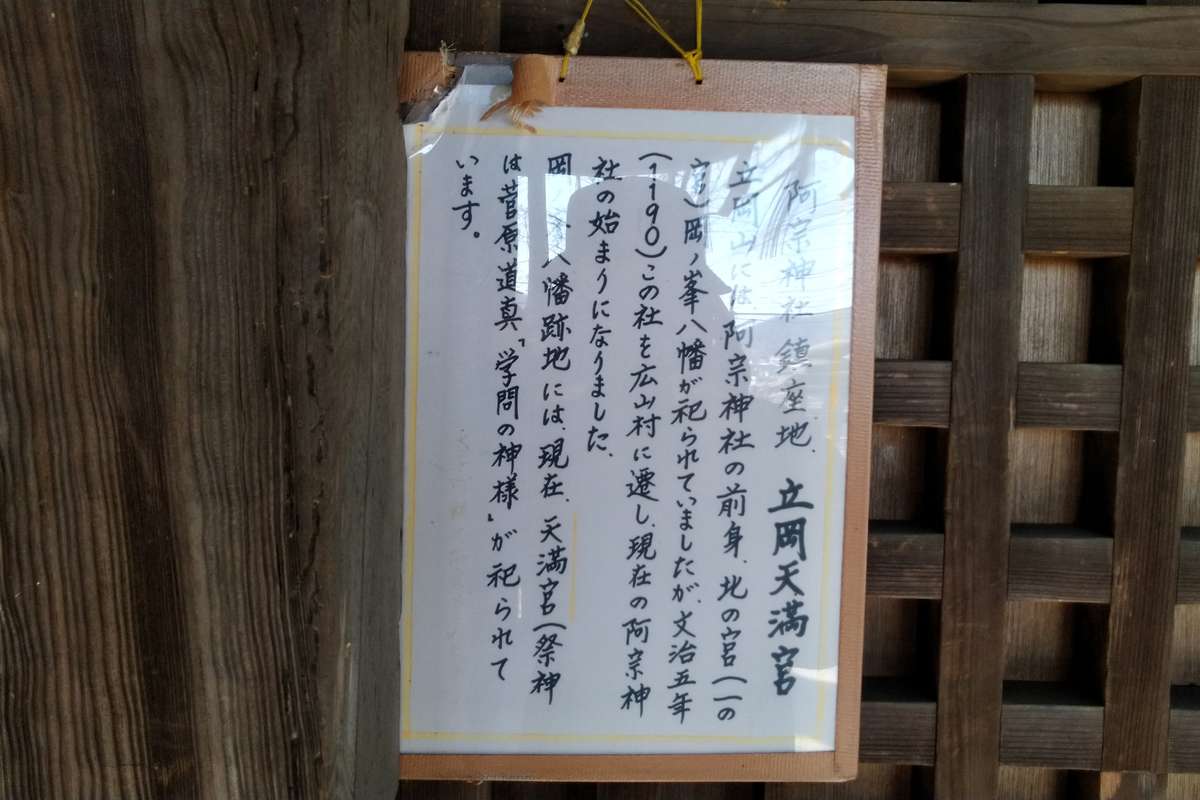 阿宗神社鎮座地、立岡天満宮
立岡山には阿宗神社の前身、北の宮(一の
宮)岡ノ峯八幡が祀られていましたが、文治五年
(1190)この社を広山村に遷し、現在の阿宗神
社の始まりになりました、
岡 八幡跡地には、現在、天満宮(祭神
は菅原道真「学問の神様」が祀られて
います。